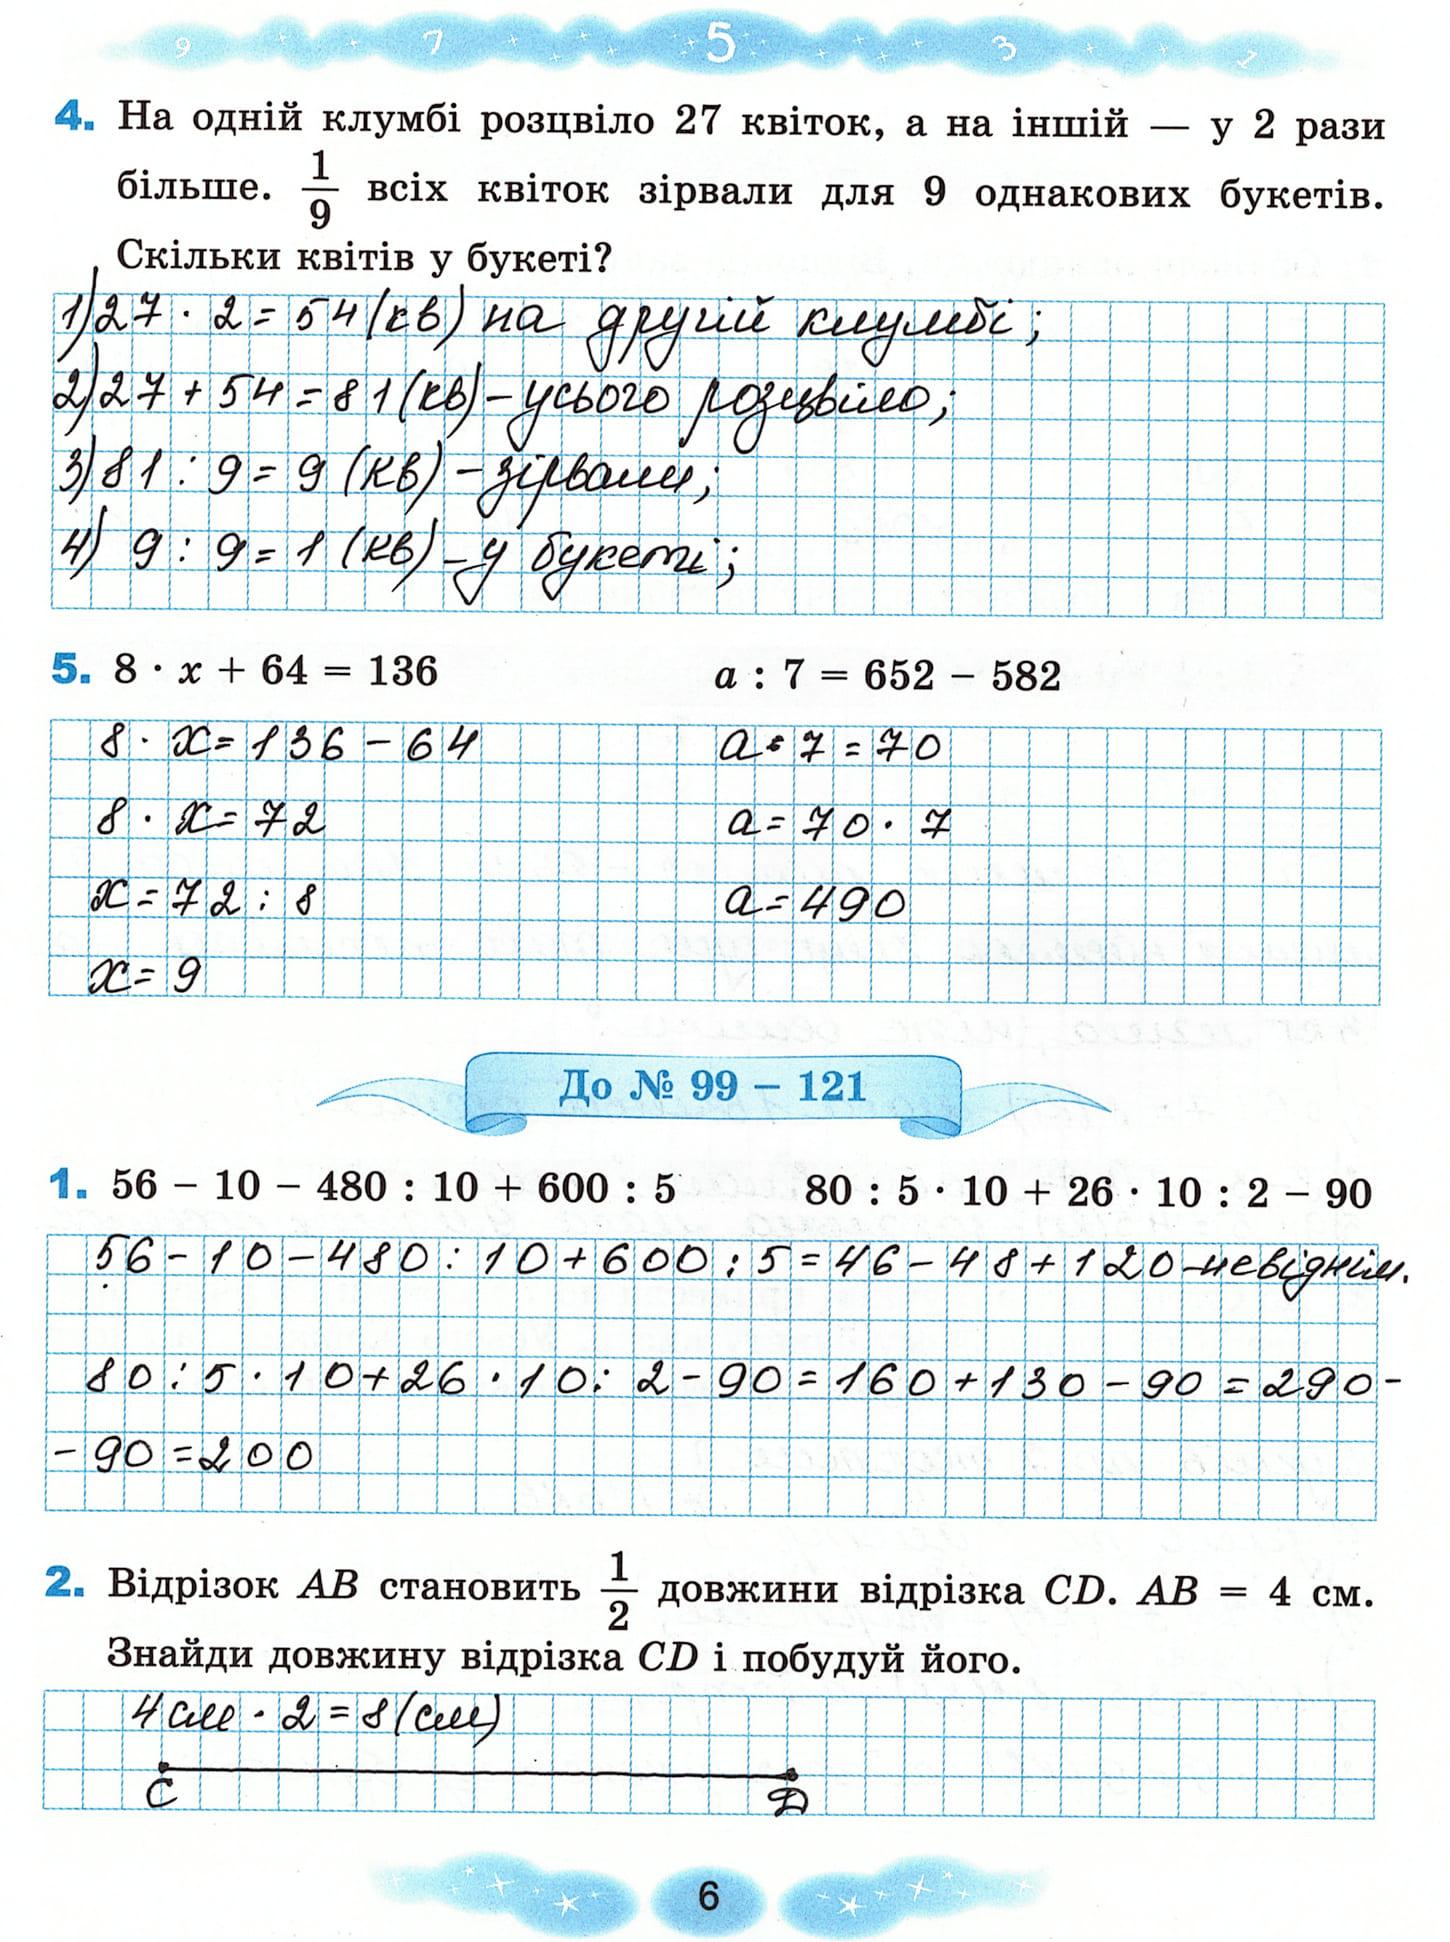 9 7 5 3 1
4. На одній клумбі розцвіло 27 квіток, а на іншій — у 2 рази
більше. 1/9 всіх квіток зірвали для 9 однакових букетів.
Скільки квітів у букеті?
1) 27 · 2 = 54 (кв) на другій клумбі;
2) 27 + 54 = 81 (кв) – усього розцвіло;
3) 81 : 9 = 9 (кв) – зірвали;
4) 9 : 9 = 1 (кв) – у букеті;
5. 8 · x + 64 = 136 a : 7 = 652 − 582
8 · x = 136 − 64 a : 7 = 70
8 · x = 72 a = 70 · 7
x = 72 : 8 a = 490
x = 9
До № 99 – 121
1. 56 − 10 − 480 : 10 + 600 : 5 80 : 5 · 10 + 26 · 10 : 2 − 90
56 − 10 − 480 : 10 + 600 : 5 = 46 − 48 + 120 – невіднім.
80 : 5 · 10 + 26 · 10 : 2 − 90 = 160 + 130 − 90 = 290 −
− 90 = 200
2. Відрізок AB становить 1/2 довжини відрізка CD. AB = 4 см.
Знайди довжину відрізка CD і побудуй його.
4 см · 2 = 8 (см)
C D
6